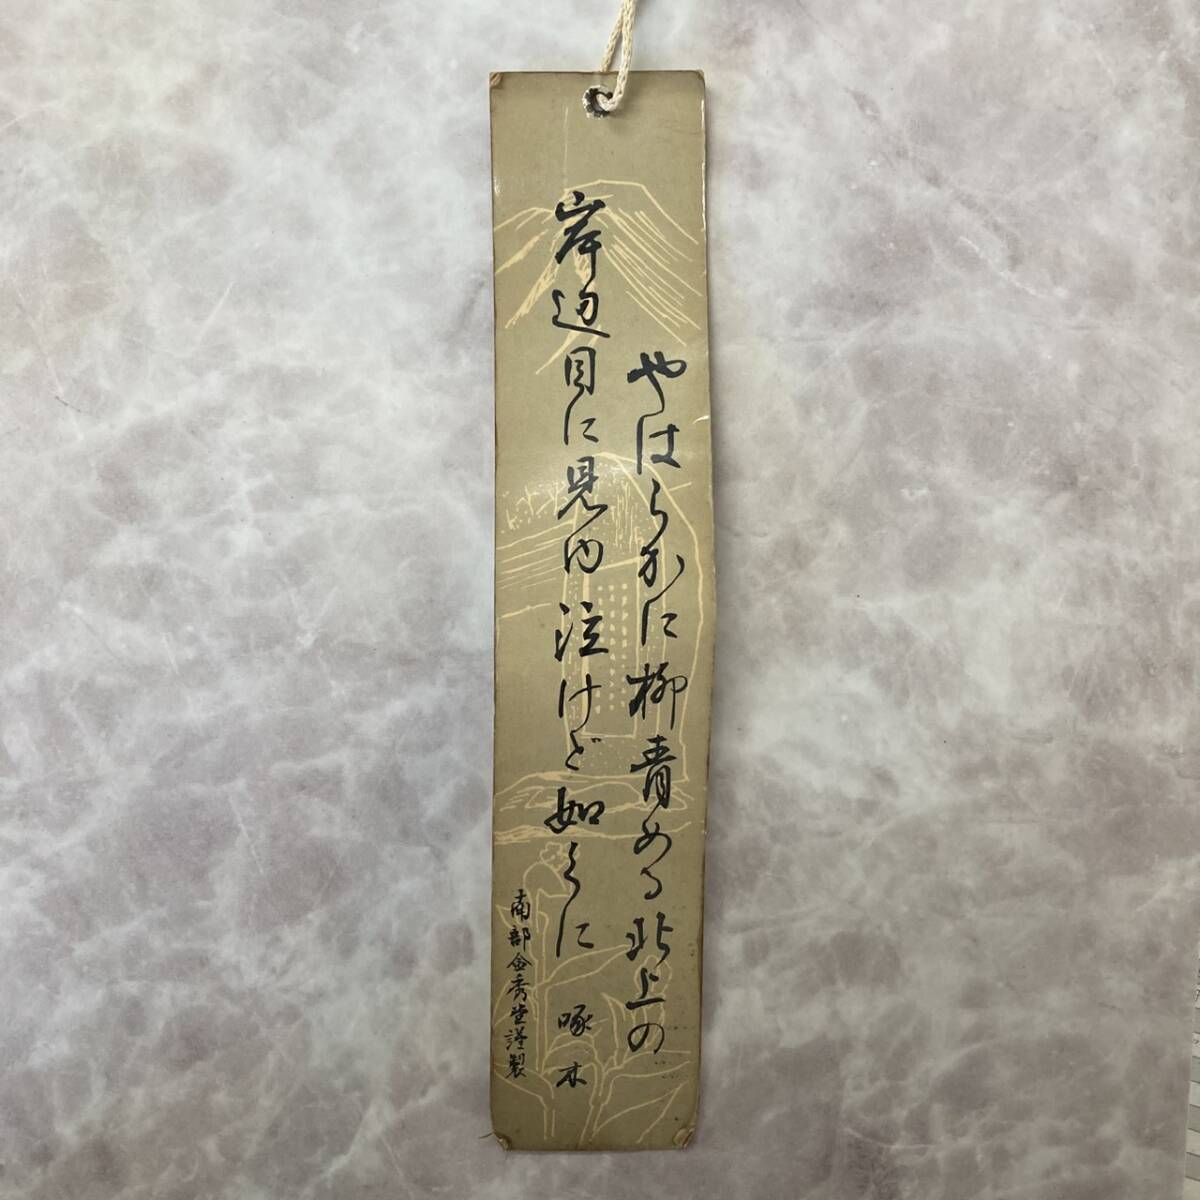 やはらかに柳青める北上の
岸辺目に見ゆ泣けど如くに
啄木
南部金秀堂謹製